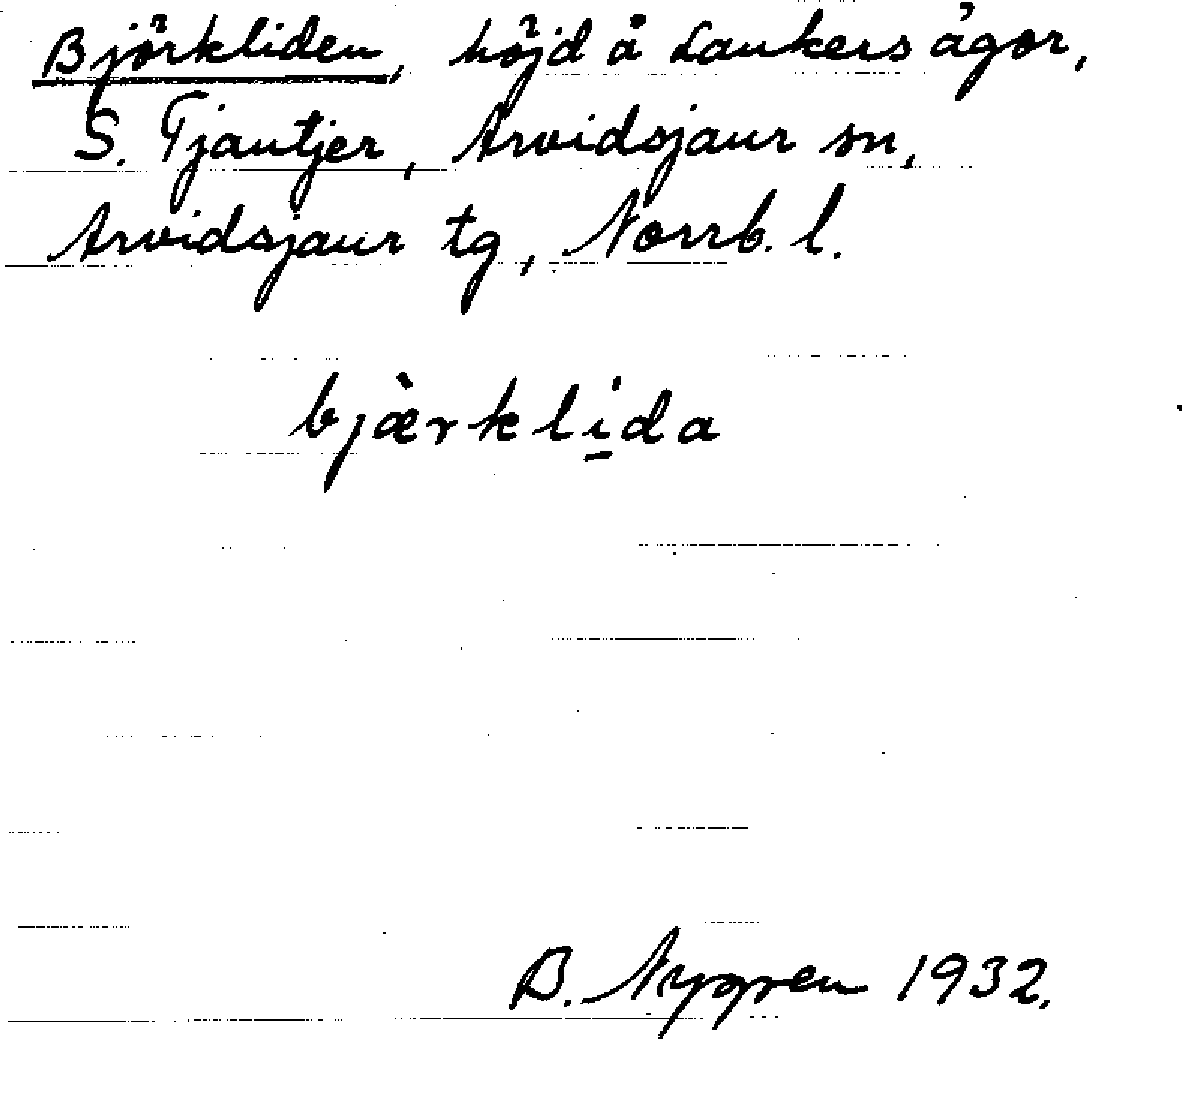 Björkliden, höjd å Laukers ägor,
S. Tjautjer, Arvidsjaur sn,
Arvidsjaur tg, Norrb. l.
bjæ̀rkli̠da
B. Nygren 1932.